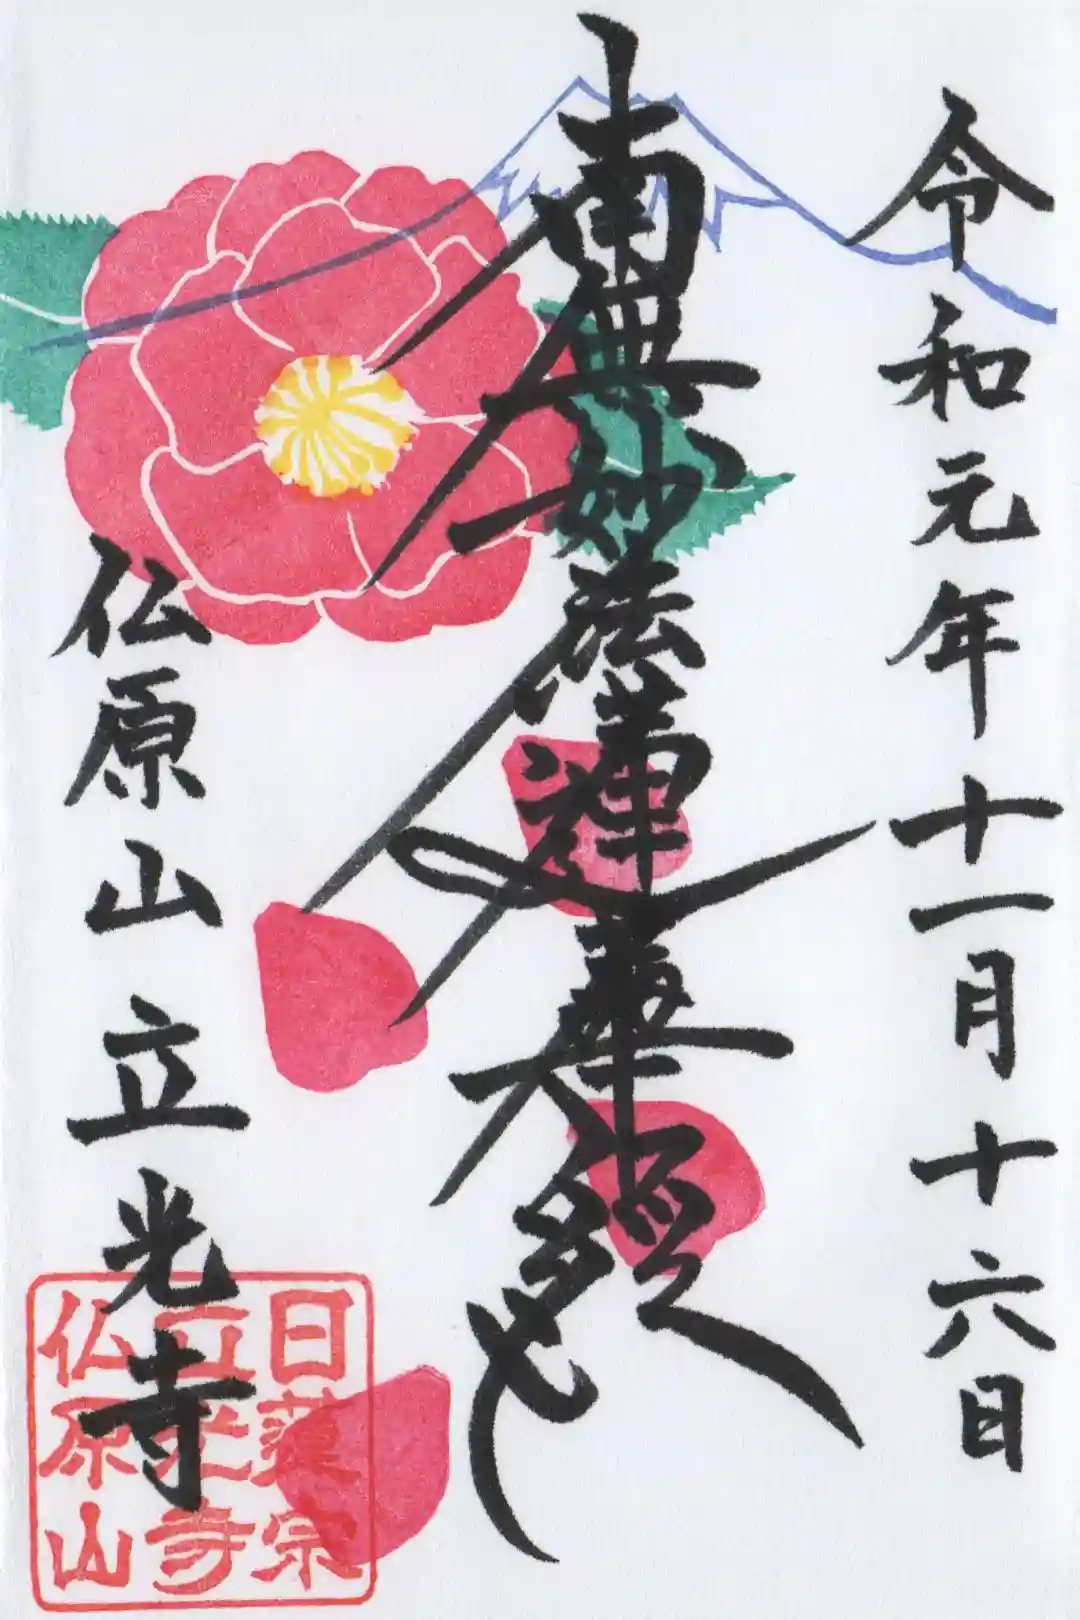 令和元年十一月十六日
南無妙法蓮華経
仏原山 立光寺
日蓮宗
立光寺
仏原山